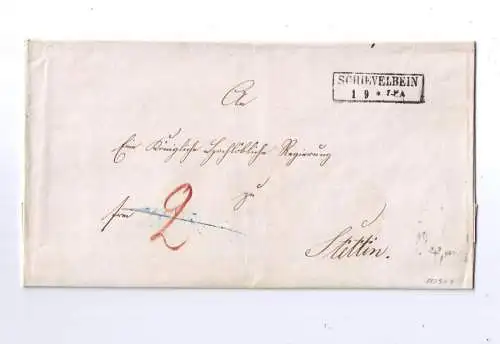 SCHIEVELBEIN
1 9
An
Eine Königliche Hochlöbliche Regierung
zu
frei 2
Stettin.